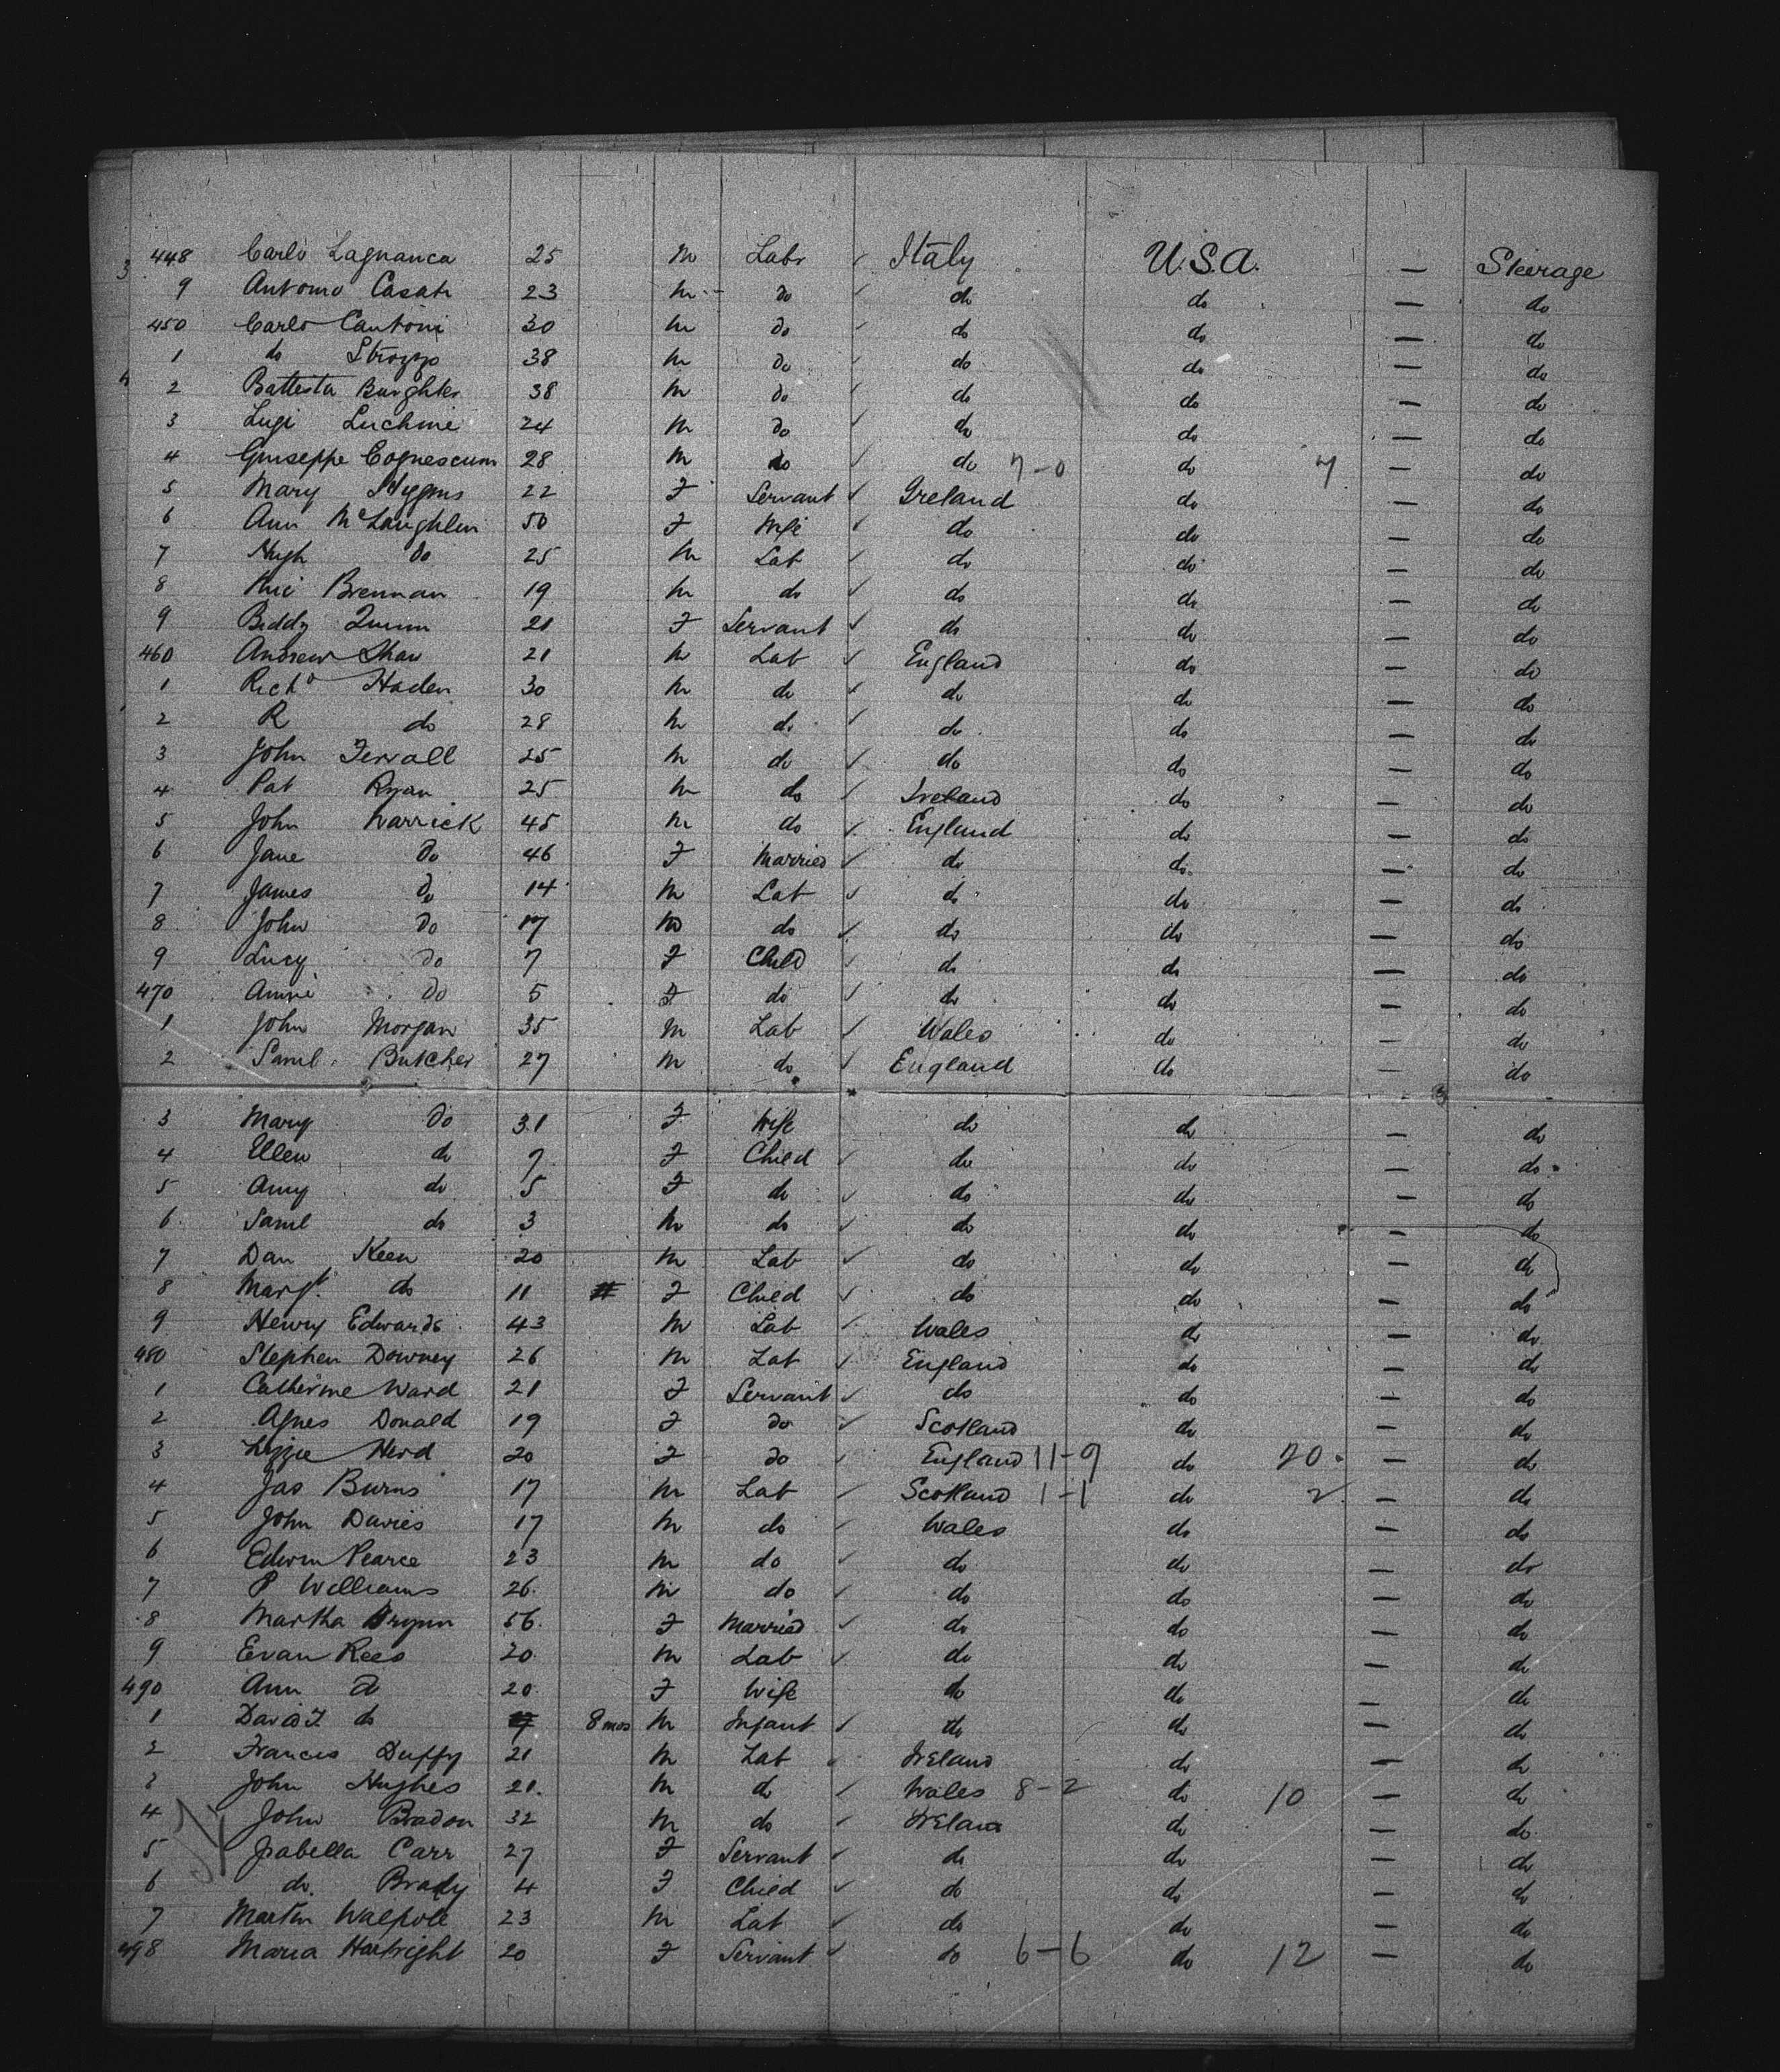 448 Carlo Lagnanca 25 m Labr ✓ Italy U.S.A. — Steerage
9 Antonio Casati 23 m do ✓ do do — do
450 Carlo Cantoni 30 m do ✓ do do — do
1 do 38 m do ✓ do do — do
2 Battista 38 m do ✓ do do — do
3 Lugi Luchini 24 m do ✓ do do — do
4 Guiseppe 28 m do ✓ do 7-0 do 7 — do
5 Mary Higgins 22 F Servant ✓ Ireland do — do
6 Ann McLaughlin 50 F Wife ✓ do do — do
7 Hugh do 25 m Lab ✓ do do — do
8 Mic Brennan 19 m do ✓ do do — do
9 Biddy Quinn 21 F Servant ✓ do do — do
460 Andrew Shaw 21 m Lab ✓ England do — do
1 Richd Haden 30 m do ✓ do do — do
2 R do 28 m do ✓ do do — do
3 John 25 m do ✓ do do — do
4 Pat Ryan 25 m do ✓ Ireland do — do
5 John Warrick 45 m do ✓ England do — do
6 Jane do 46 F Married ✓ do do — do
7 James do 14 m Lab ✓ do do — do
8 John do 17 m do ✓ do do — do
9 Lucy do 7 F Child ✓ do do — do
470 Annie do 5 F do ✓ do do — do
1 John Morgan 35 m Lab ✓ Wales do — do
2 Saml Butcher 27 m do ✓ England do — do
3 Mary do 31 F Wife do do — do
4 Ellen do 7 F Child ✓ do do — do
5 Amy do 5 F do ✓ do do — do
6 Saml do 3 m do ✓ do do — do
7 Dan Keen 20 m Lab ✓ do do — do
8 Margt do 11 F Child ✓ do do — do
9 Henry Edwards 43 m Lab ✓ Wales do — do
480 Stephen Downey 26 m Lab ✓ England do — do
1 Catherine Ward 21 F Servant ✓ do do — do
2 Agnes Donald 19 F do ✓ Scotland do — do
3 Lizzie Herd 20 F do ✓ England 11-9 do 20 — do
4 Jas Burns 17 m Lab ✓ Scotland 1-1 do 2 — do
5 John Davies 17 m do ✓ Wales do — do
6 Edwin Pearce 23 m do ✓ do do — do
7 P Williams 26 m do ✓ do do — do
8 Martha 56 F Married ✓ do do — do
9 Evan Rees 20 m Lab ✓ do do — do
490 Ann do 20 F Wife do do — do
1 David J. do 8 mos m Infant ✓ do do — do
2 Francis Duffy 21 m Lab ✓ Ireland do — do
3 John Hughes 21 m do ✓ Wales 8-2 do 10 — do
4 John Bradon 32 m do ✓ Ireland do — do
5 Isabella Carr 27 F Servant ✓ do do — do
6 do Brady 4 F Child ✓ do do — do
7 Martin Walpole 23 m Lab ✓ do do — do
498 Maria Hartright 20 F Servant ✓ do 6-6 do 12 — do